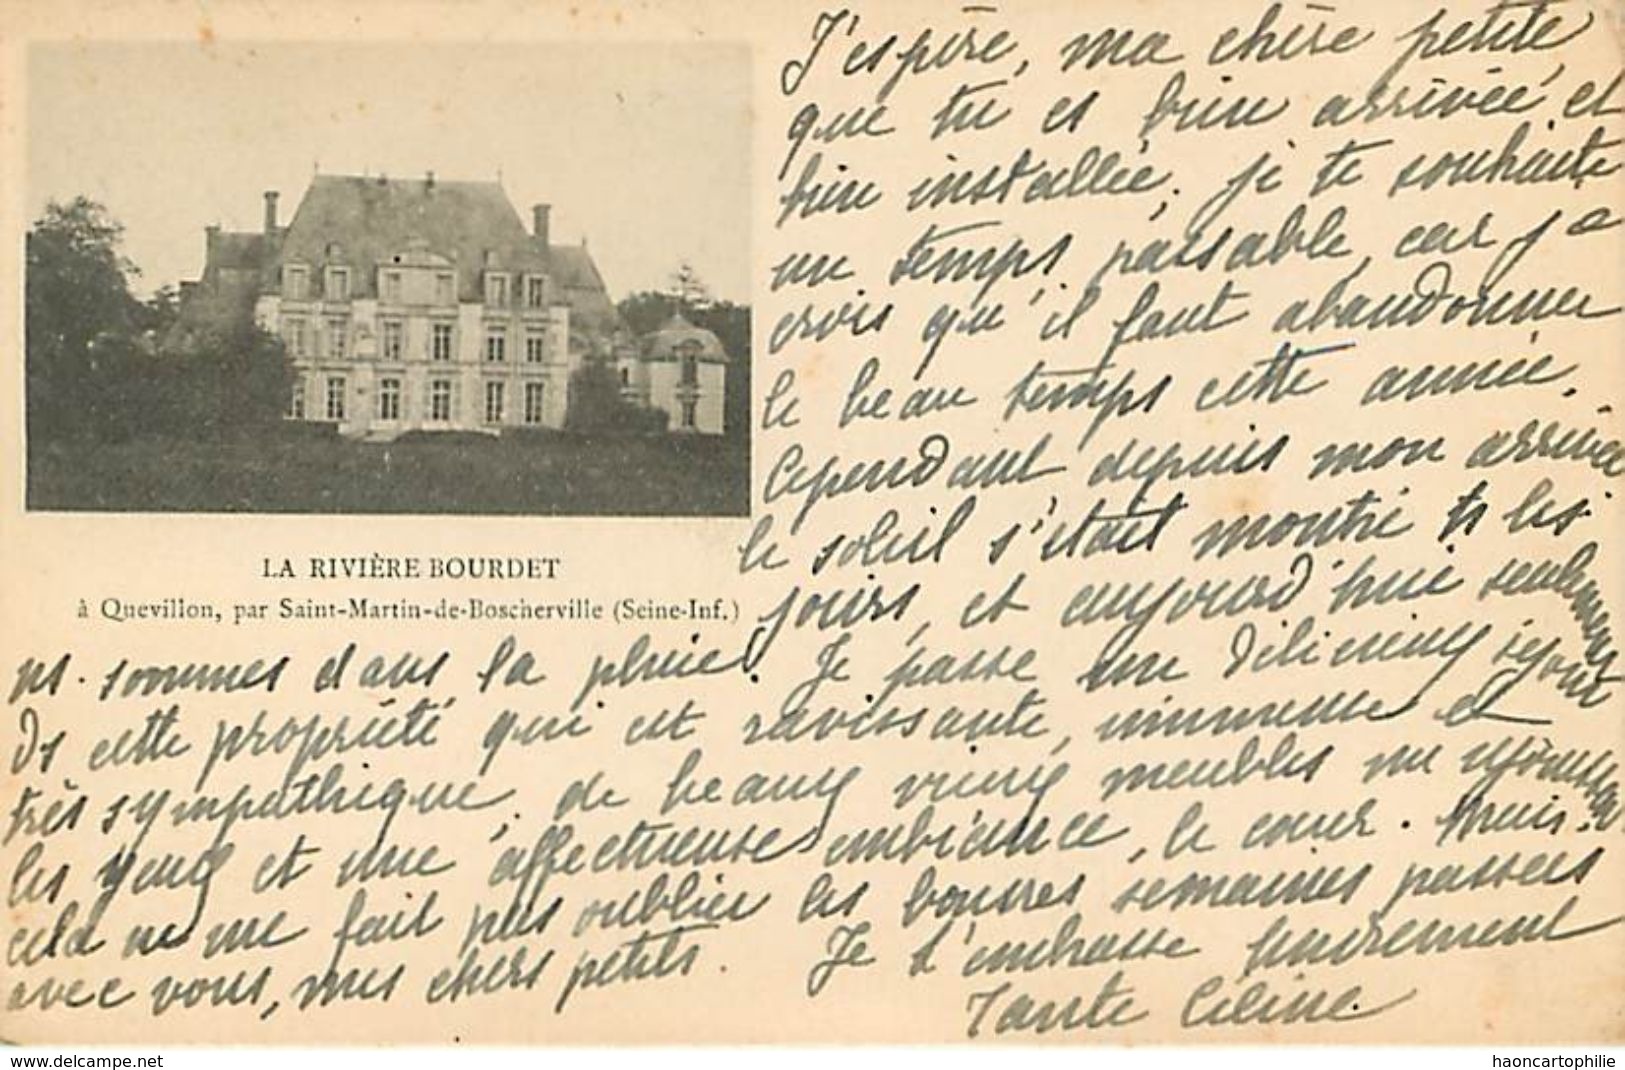 J'espère, ma chère petite,
que tu es bien arrivée, et
bien installée, je te souhaite
un temps passable, car je
crois qu'il faut abandonner
le beau temps cette année.
Cependant depuis mon arrivée
le soleil s'était montré ts les
jours, et aujourd'hui seulement
LA RIVIÈRE BOURDET
à Quevillon, par Saint-Martin-de-Boscherville (Seine-Inf.)
ns. sommes dans la pluie. Je passe un délicieux séjour
ds cette propriété qui est ravissante, immense et
très sympathique, de beaux vieux meubles me réjouissent
les yeux et une affectueuse ambiance, le cœur. Mais
cela ne me fait pas oublier les bonnes semaines passées
avec vous, mes chers petits. Je t'embrasse tendrement
Tante Céline.
www.delcampe.net
haoncartophilie